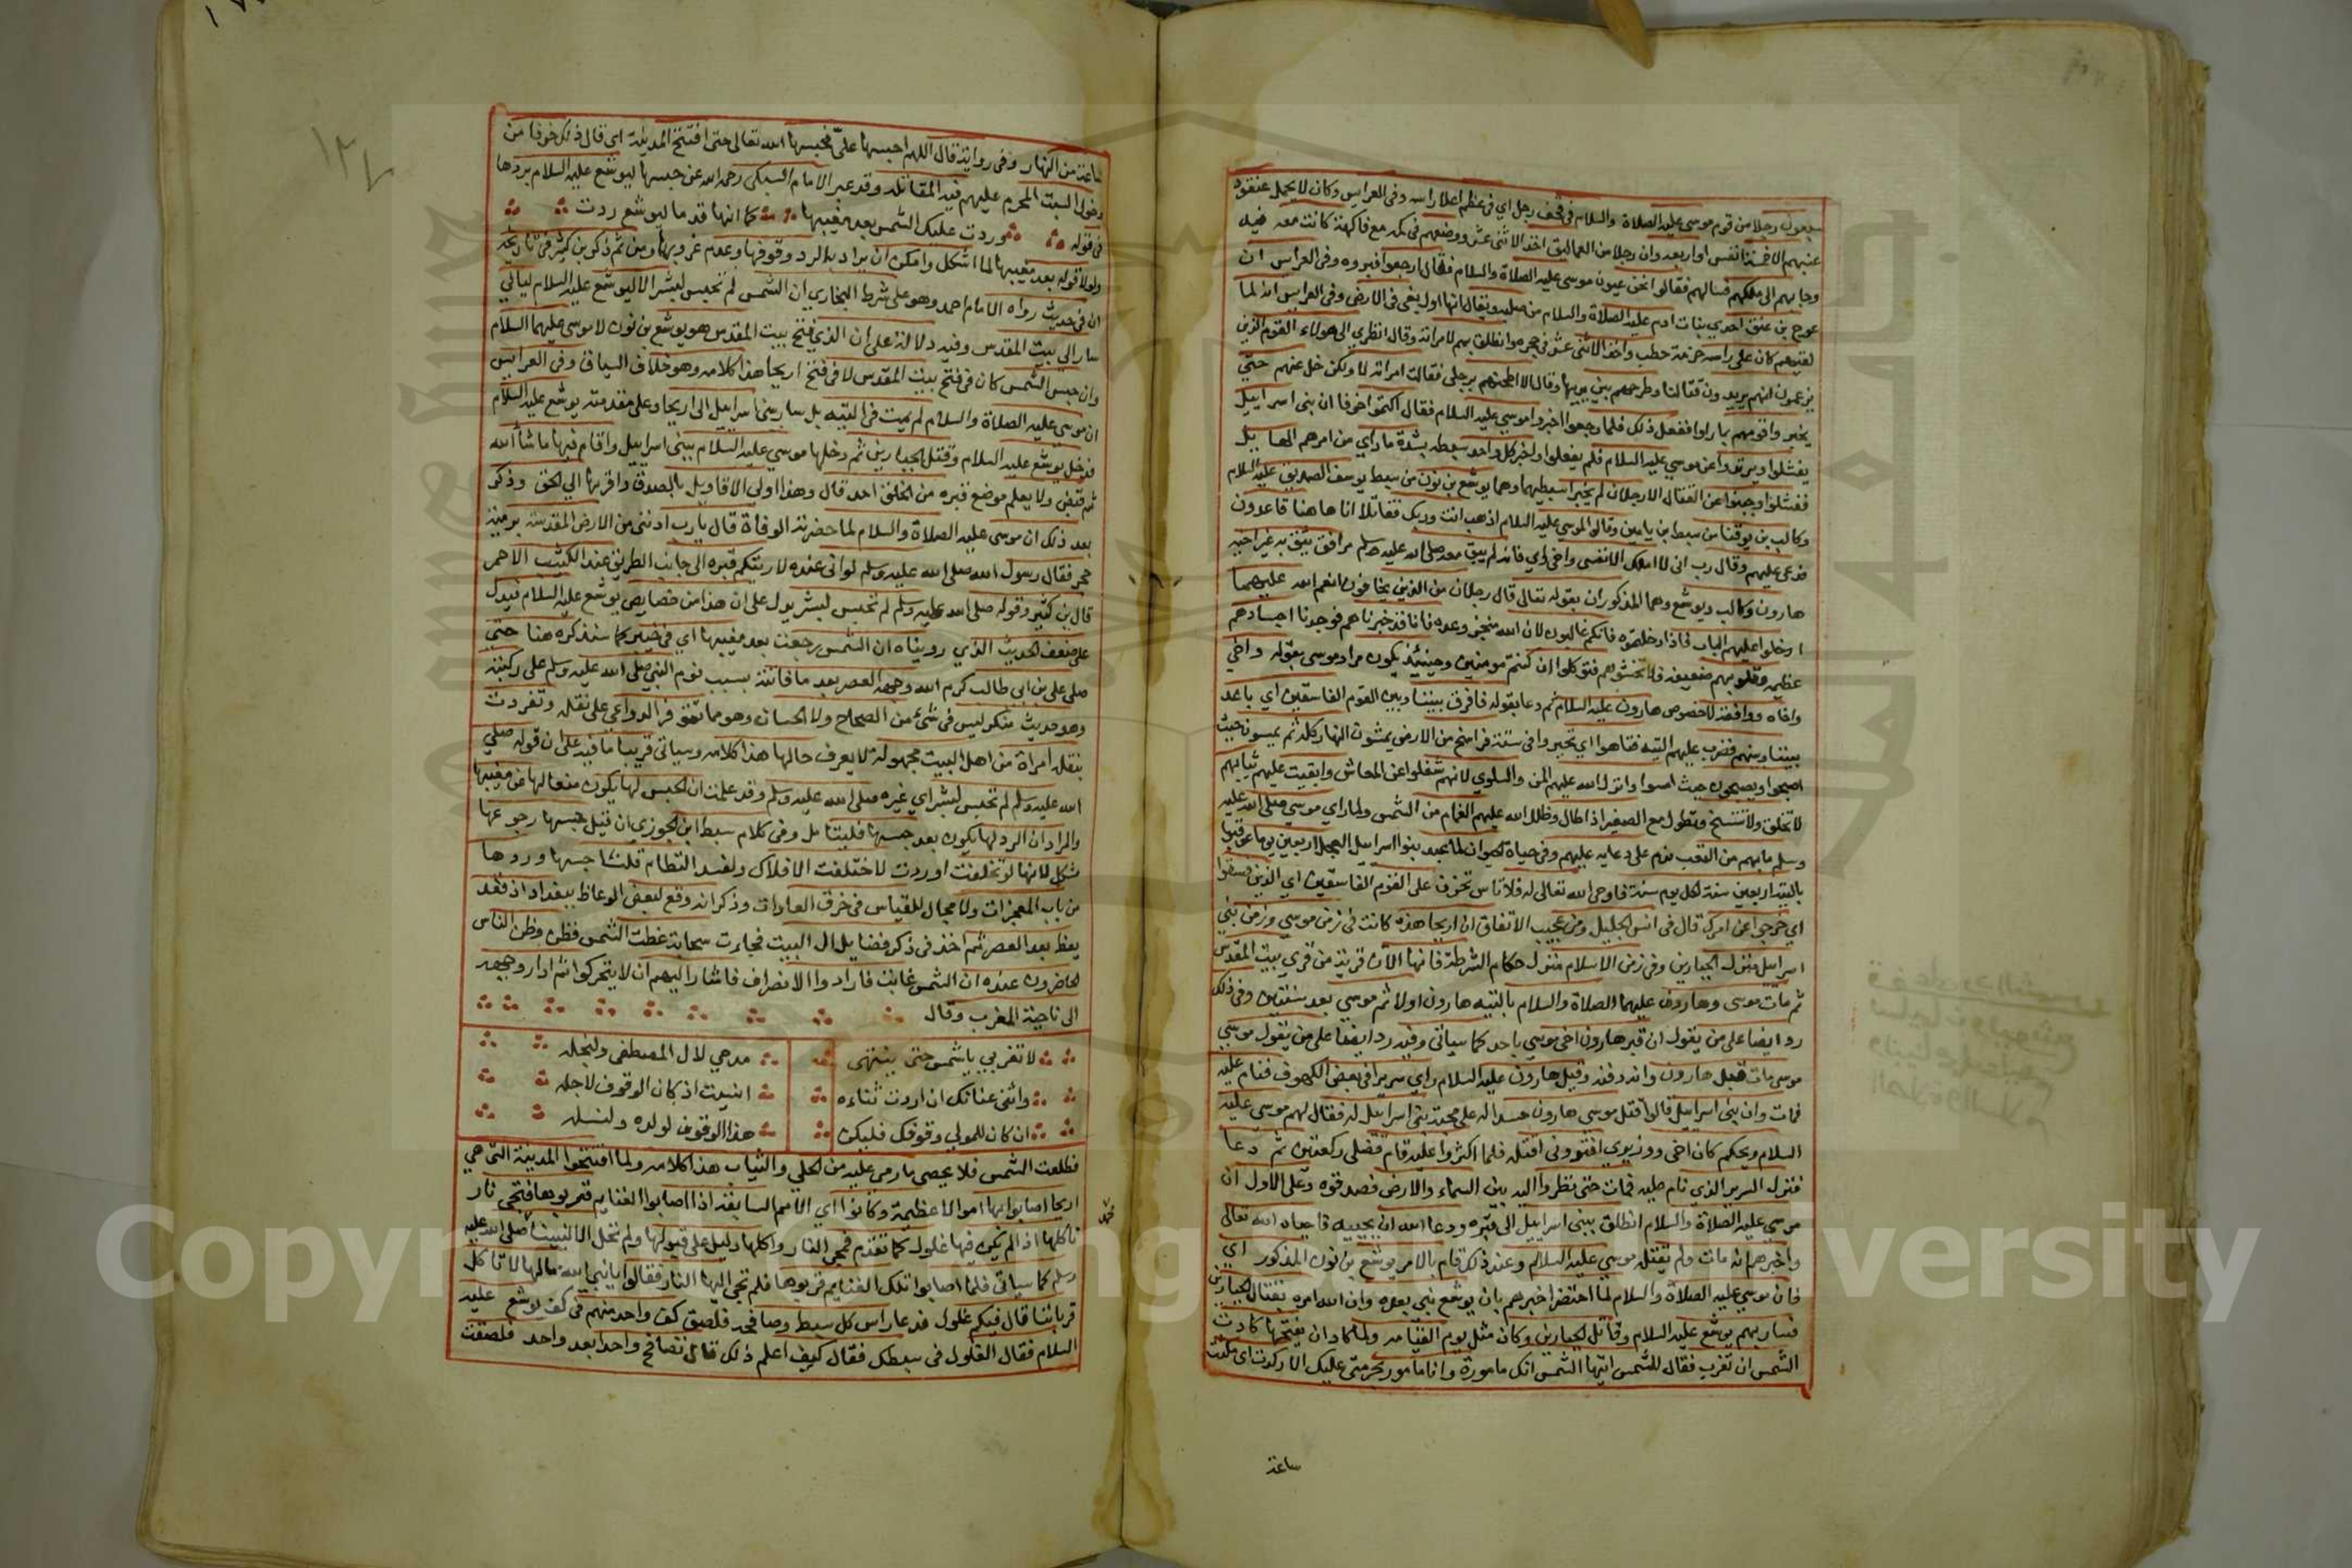 سبعون رجلا من قوم موسى عليه الصلاة والسلام في قحف رجل اي في عظم اعلا راسه وفي العرايس وكان لا يحمل عنقود
عنبهم الا خمسة انفس او اربعة وان رجلا من العمالقة اخذ الاثنى عشر ووضعهم في كمه مع فاكهة كانت معه فيه
وجا بهم الى ملكهم فسالهم فقالوا نحن عيون موسى عليه الصلاة والسلام فقال ارجعوا اخبروه وفي العرايس ان
عوج بن عنق احدي بنات ادم عليه الصلاة والسلام من صلبه ويقال انها اول بغى في الارض وفي العرايس انه لما
لقيهم كان على راسه حزمة حطب واخذ الاثنى عشر في حجره وانطلق بهم لامراته وقال انظري الى هولاء القوم الذين
يزعمون انهم يريدون قتالنا وطرحهم بين يديها وقال الا اطحنهم برجلي فقالت امراته لا ولكن خل عنهم حتي
يخبروا قومهم بما راوا ففعل ذلك فلما رجعوا اخبروا موسى عليه السلام فقال اكتموا خوفا ان بنى اسراييل
يفشلوا ويرتدوا عن موسي عليه السلام فلم يفعلوا واخبر كل واحد سبطه بشدة ماراي من امرهم الهايل
ففشلوا وجبنوا عن القتال الا رجلان لم يخبرا سبطيهما وهما يوشع بن نون من سبط يوسف الصديق عليه السلام
وكالب بن يوقنا من سبط بن يامين وقالوا لموسي عليه السلام اذهب انت وربك فقاتلا انا هاهنا قاعدون
فدعى عليهم وقال رب انى لا املك الا نفسى واخى اي فانه لم يبق معه صلى الله عليه وسلم مرافق يثق به غير اخيه
هارون وكالب ويوشع وهما المذكوران بقوله تعالى قال رجلان من الذين يخافون انعم الله عليهما
ادخلوا عليهم الباب فاذا دخلتموه فانكم غالبون لان الله منجز وعده فانا قد خبرناهم فوجدنا اجسادهم
عظيمه وقلوبهم ضعيفة فلا تخشوهم فتوكلوا ان كنتم مومنين وحينئذ يكون مراد موسى بقوله واخى
واخاه ووافقه لا خصوص هارون عليه السلام ثم دعا بقوله فافرق بيننا وبين القوم الفاسقين اي باعد
بيننا وبينهم فضرب عليهم التيه فتاهوا اي تحيروا في ستة فراسخ من الارض يمشون النهار كله ثم يمسون حيث
اصبحوا ويصبحون حيث امسوا وانزل الله عليهم المن والسلوي لانهم شغلوا عن المعاش وابقيت عليهم ثيابهم
لا تخلق ولا تتسخ وتطول مع الصغير اذا طال وظلل الله عليهم الغمام من الشمس ولما راي موسي صلى الله عليه
وسلم مابهم من التعب ندم على دعايه عليهم وفي حياة الحيوان لما عبد بنوا اسراييل العجل اربعين يوما عوقبوا
بالتيه اربعين سنة لكل يوم سنة فاوحى الله تعالى له فلا تاس تحزن على القوم الفاسقين اي الذين فسقوا
اي خرجوا عن امرك قال في انس الجليل ومن عجيب الاتفاق ان اريحا هذه كانت في زمن موسي وزمن بني
اسراييل منزل الجبارين وفي زمن الاسلام منزل حكام الشرطة فانها الان قرية من قري بيت المقدس
ثم مات موسى وهارون عليهما الصلاة والسلام بالتيه هارون اولا ثم موسي بعد سنتين وفي ذلك
ردا ايضا على من يقول ان قبر هارون اخى موسي باحد كما سياتى وفيه ردا ايضا على من يقول موسي
موسي مات قبل هارون وانه دفنه وقيل هارون عليه السلام راي سريرا في بعض الكهوف فنام عليه
فمات وان بنى اسراييل قالوا قتل موسي هارون حسدا له على محبة بنى اسراييل له فقال لهم موسي عليه
السلام ويحكم كان اخى ووزيري افتروني اقتله فلما اكثروا عليه قام فصلى ركعتين ثم دعا
فنزل السرير الذي نام عليه فمات حتى نظروا اليه بين السماء والارض فصدقوه وعلى الاول ان
موسي عليه الصلاة والسلام انطلق ببنى اسراييل الى قبره ودعا الله ان يحييه فاحياه الله تعالى
واخبرهم انه مات ولم يقتله موسي عليه السلام وعند ذلك قام بالامر يوشع بن نون المذكور اي
فان موسي عليه الصلاة والسلام لما احتضر اخبرهم بان يوشع نبي بعده وان الله امره بقتال الجبارين
فسار بهم يوشع عليه السلام وقاتل الجبارين وكان مثل يوم القيامه ولما كاد ان يفتحها كادت
الشمس ان تغرب فقال للشمس ايتها الشمس انك مامورة وانا مامور بحرمتى عليك الا ركدت اى مكثت
ساعة
ساعة من النهار وفي رواية قال اللهم احبسها علىّ فحبسها الله تعالى حتى افتتح المدينة اي قال ذلك خوفا من
دخول السبت المحرم عليهم فيه المقاتله وقد عبر الامام السبكى رحمه الله عن حبسها ليوشع عليه السلام بردها
في قوله وردت عليك الشمس بعد مغيبها كما انها قدما ليوشع ردت
ولولا قوله بعد مغيبها لما اشكل وامكن ان يراد بالرد وقوفها وعدم غروبها ومن ثم ذكر بن كثير في تاريخه
ان في حديث رواه الامام احمد وهو على شرط البخاري ان الشمس لم تحبس لبشر الا ليوشع عليه السلام ليالي
سار الي بيت المقدس وفيه دلالة على ان الذي فتح بيت المقدس هو يوشع بن نون لا موسى عليهما السلام
وان حبس الشمس كان في فتح بيت المقدس لا في فتح اريحا هذا كلامه وهو خلاف السياق وفي العرايس
ان موسي عليه الصلاة والسلام لم يمت في التيه بل سار ببنى اسراييل الى اريحا وعلى مقدمته يوشع عليه السلام
فدخل يوشع عليه السلام وقتل الجبارين ثم دخلها موسي عليه السلام ببنى اسراييل واقام فيها ما شا الله
ثم قبض ولا يعلم موضع قبره من الخلق احد قال وهذا اولى الاقاويل بالصدق واقربها الي الحق وذكر
بعد ذلك ان موسى عليه الصلاة والسلام لما حضرته الوفاة قال يا رب ادننى من الارض المقدسة برمية
حجر فقال رسول الله صلى الله عليه وسلم لو انى عنده لاريتكم قبره الى جانب الطريق عند الكثيب الاحمر
قال بن كثير وقوله صلى الله عليه وسلم لم تحبس لبشر يدل على ان هذا من خصايص يوشع عليه السلام فيدل
على ضعف الحديث الذي رويناه ان الشمس رجعت بعد مغيبها اي في خيبر كما سنذكره هنا حتى
صلى على بن ابى طالب كرم الله وجهه العصر بعد ما فاتته بسبب نوم النبي صلى الله عليه وسلم على ركبته
وهو حديث منكر ليس في شئ من الصحاح ولا الحسان وهو مما تتوفر الدواعي على نقله وتفردت
بنقله امراة من اهل البيت مجهولة لا يعرف حالها هذا كلامه وسياتى قريبا ما فيه على ان قوله صلي
الله عليه وسلم لم تحبس لبشر اي غيره صلى الله عليه وسلم وقد علمت ان الحبس لها يكون منعا لها عن مغيبها
والمراد ان الرد لها يكون بعد حبسها فليتامل وفي كلام سبط ابن الجوزي ان قيل حبسها رجوعها
مشكل لانها لو تخلفت او ردت لاختلفت الافلاك ولفسد النظام قلنا حبسها وردها
من باب المعجزات ولا مجال للقياس في خرق العادات وذكر انه وقع لبعض الوعاظ ببغداد اذ قعد
يعظ بعد العصر ثم اخذ في ذكر فضايل ال البيت فجاءت سحابة غطت الشمس فظن وظن الناس
الحاضرون عنده ان الشمس غابت فارادوا الانصراف فاشار اليهم ان لا يتحركوا ثم ادار وجهه
الى ناحية المغرب وقال
لا تغربي يا شمس حتى ينتهى مدحي لال المصطفى ولنجله
واثنى عنانك ان اردت ثناءه انسيت اذ كان الوقوف لاجله
ان كان للمولي وقوفك فليكن هذا الوقوف لولده ولنسله
فطلعت الشمس فلا يحصى ما رمى عليه من الحلي والثياب هذا كلامه ولما افتتحوا المدينة التى هي
اريحا اصابوا بها اموالا عظيمة وكانوا اي الامم السابقة اذا اصابوا الغنايم قربوها فتجي نار
تاكلها اذ الم يكن فيها غلول كما تقدم فمجي النار واكلها دليل على قبولها ولم تحل الا لنبينا صلى الله عليه
وسلم كما سياتى فلما اصابوا تلك الغنايم قربوها فلم تجي اليها النار فقالوا يا نبي الله مالها لا تاكل
قرباننا قال فيكم غلول فدعا راس كل سبط وصافحه فلصق كف واحد منهم في كف يوشع عليه
السلام فقال الغلول في سبطك فقال كيف اعلم ذلك قال تصافح واحدا بعد واحد فلصقت
Copyright © King Saud University